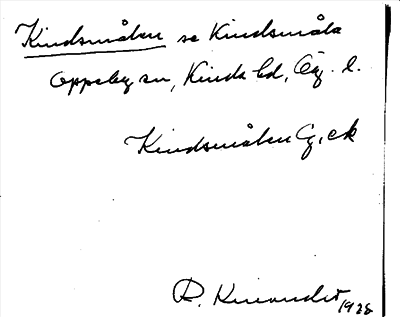 Kindsmålen se Kindsmåla
Oppeby sn, Kinds hd, Ög. l.
Kindsmålen G, ek
R. Kinander 1928